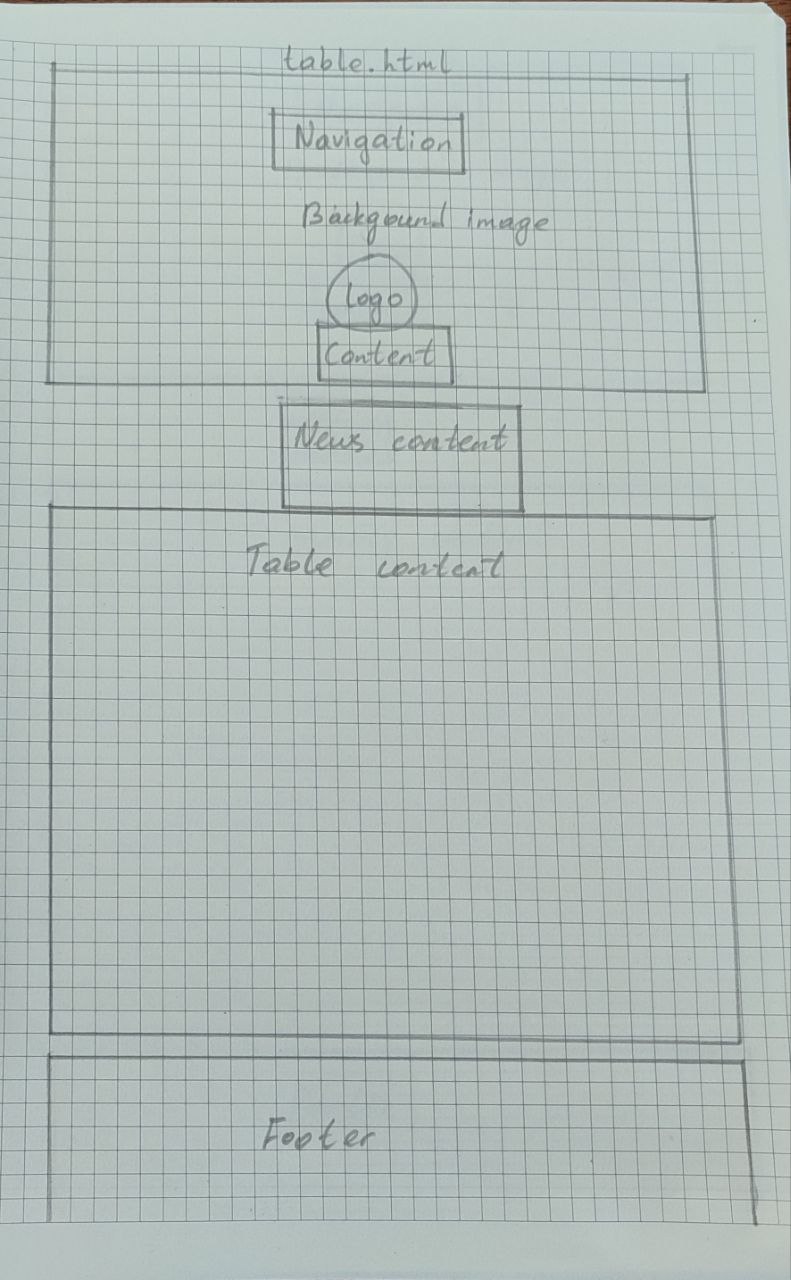 table.html
Navigation
Backgound image
Logo
Content
News content
Table content
Footer